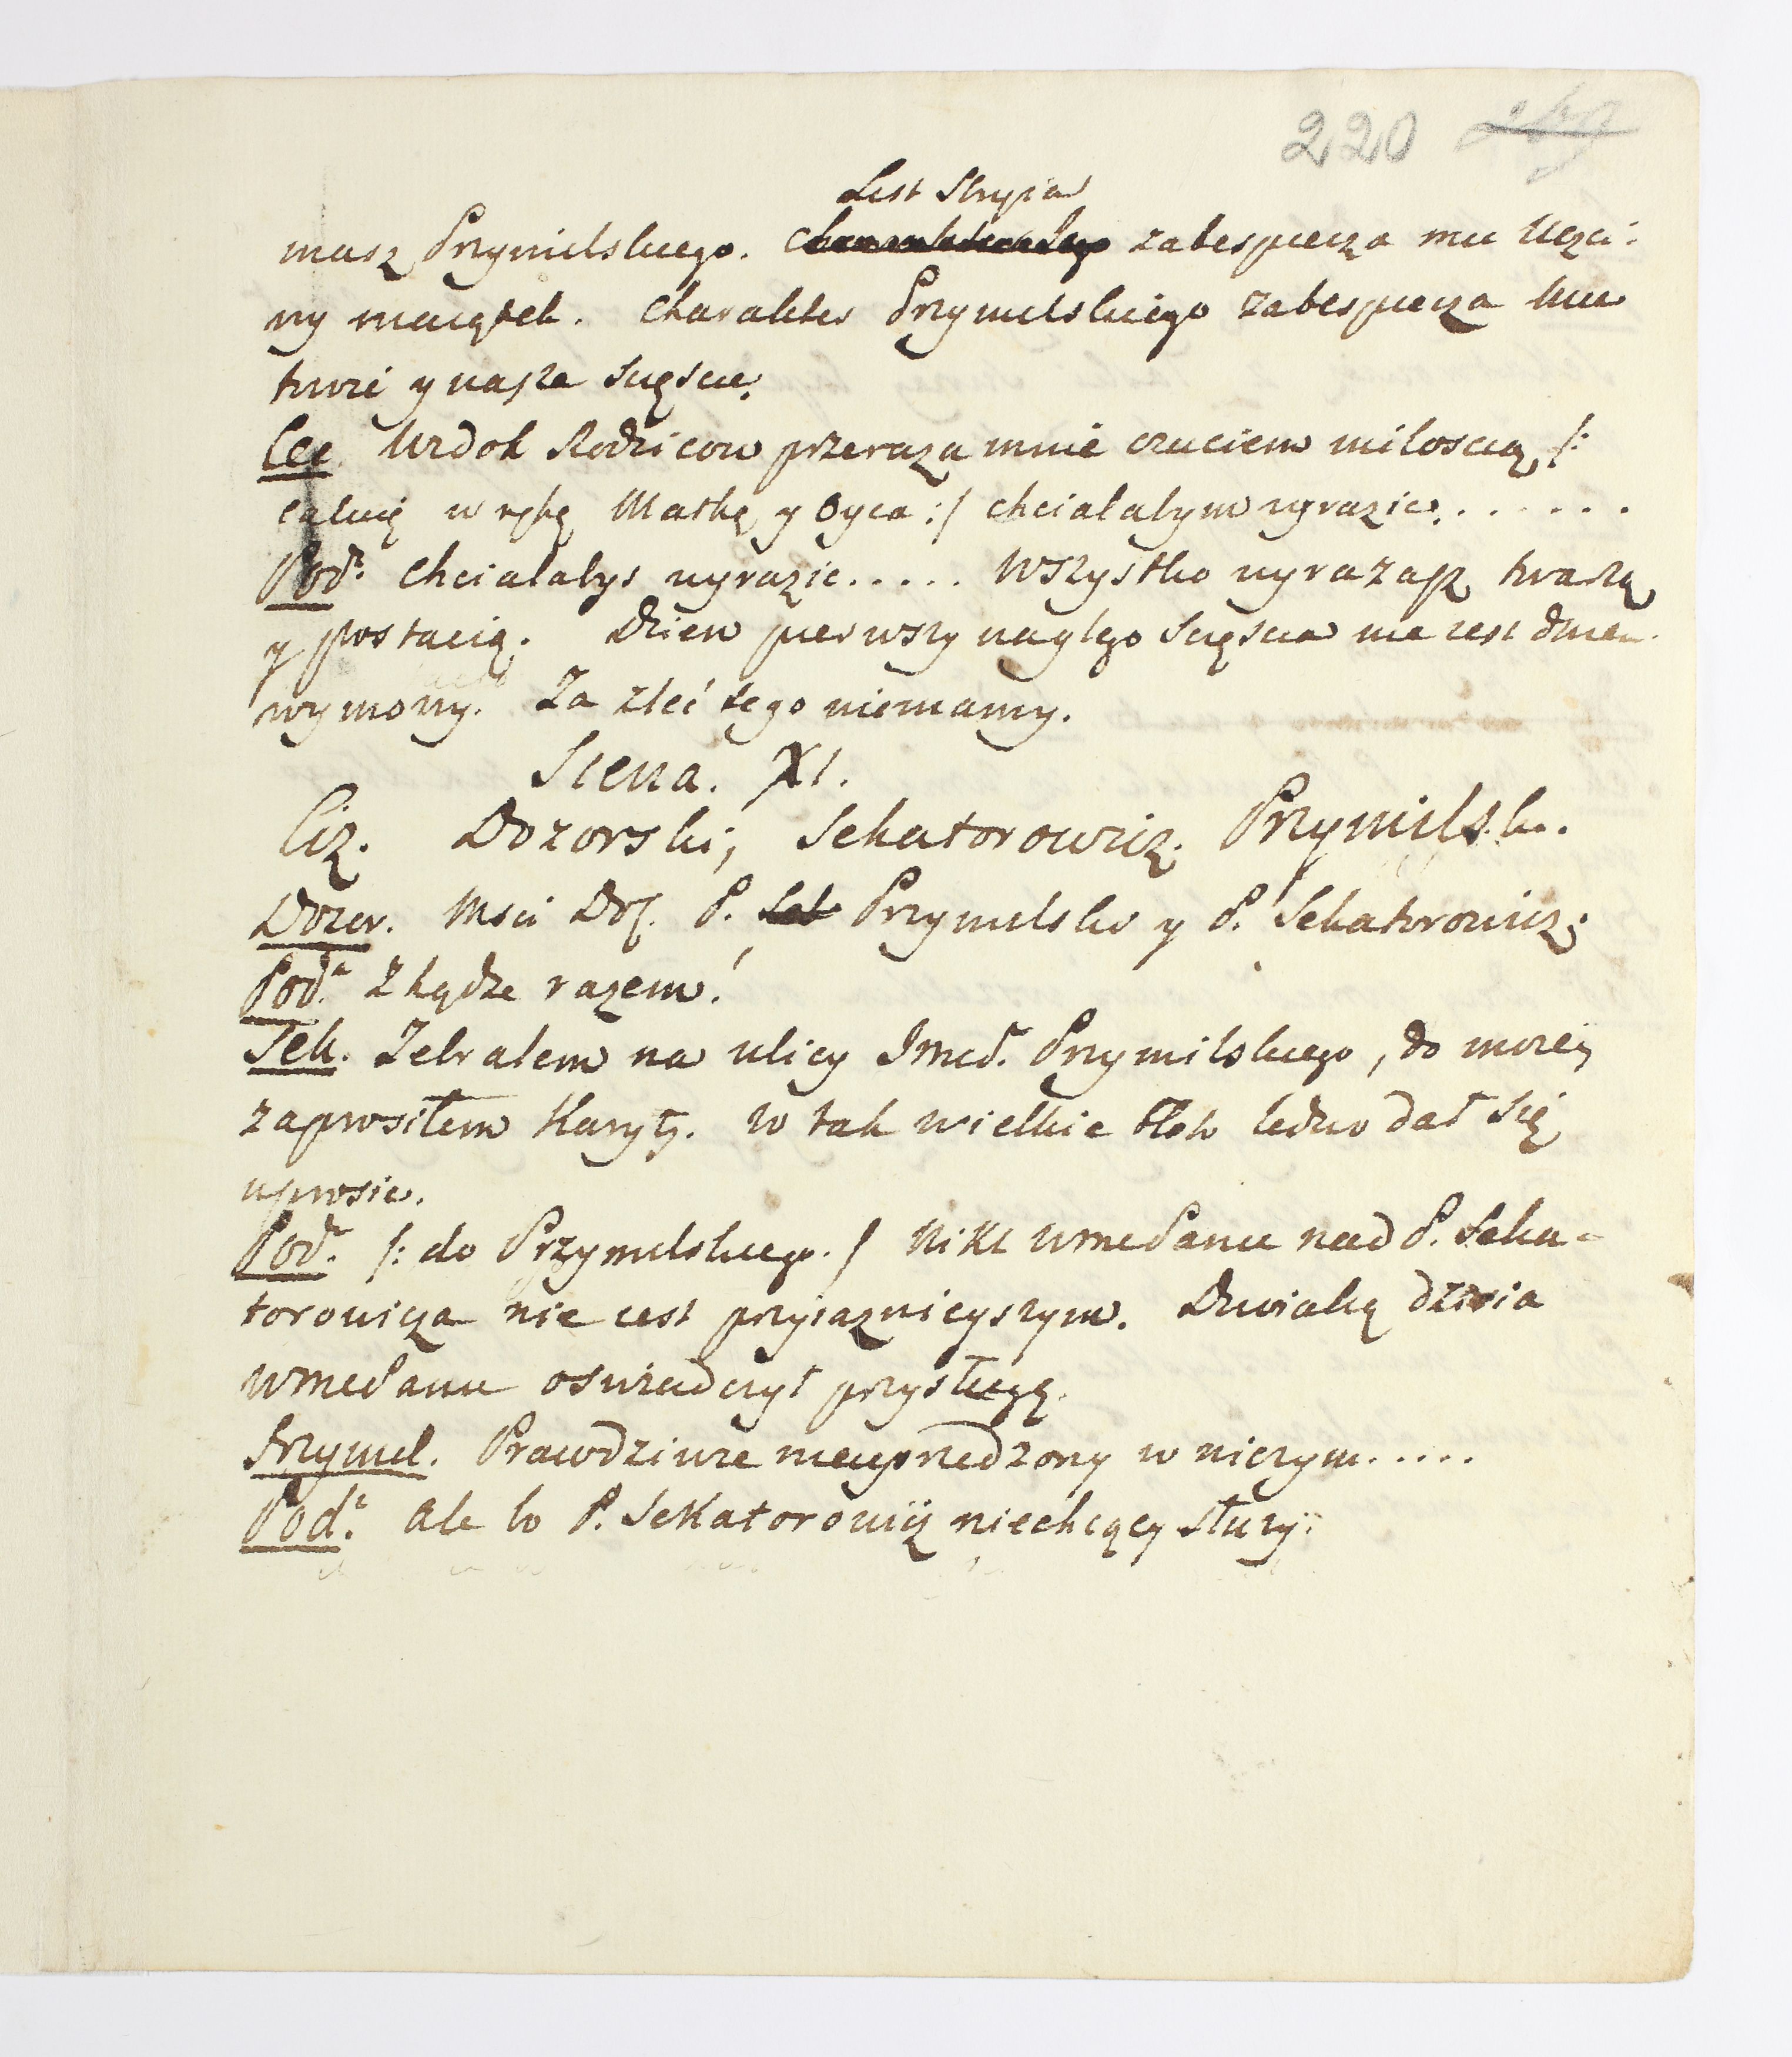 220
List Stryia
masz Przymilskiego. zabespiecza mu uczci-
ny maiątek. Charakter Przymilskiego zabespiecza
twoie y nasze scęscie.
Cec. Widok Rodzicow przeraza mnie czuciem miloscią /:
caluię w rękę Matkę y Oyca :/ chcialabym wyrazic . . . . . .
Pod.a chcialabys wyrazic..... Wszystko wyrazasz twarzą
y postacią. Dzien pierwszy naglego scęscia nie iest dniem
wymowy. Za złe ci tego niemamy.
Scena. XI.
Ciz. Dozorski, Sekatorowicz. Przymilski.
Dozor. Msci Dob. P. Przymilski y P. Sekatorowicz.
Pod.a Zkądze razem!
Sek. Zebralem na ulicy Imcd. Przymilskiego, do moiey
zaprosiłem Karyty. w tak wielkie błoto ledwo dał się
uprosic.
Pod.a /: do Przymilskiego. / Nikt Wmc Panu nad P. Seka-
torowicza nie iest przyiaznieyszym. Dwiaką dzisia
Wmc Panu oswiadczył przysługę.
Przymil. Prawdziwie nieuprzedzony w niczym.....
Pod.a Ale to P. Sekatorowicz niechcący słuzy.